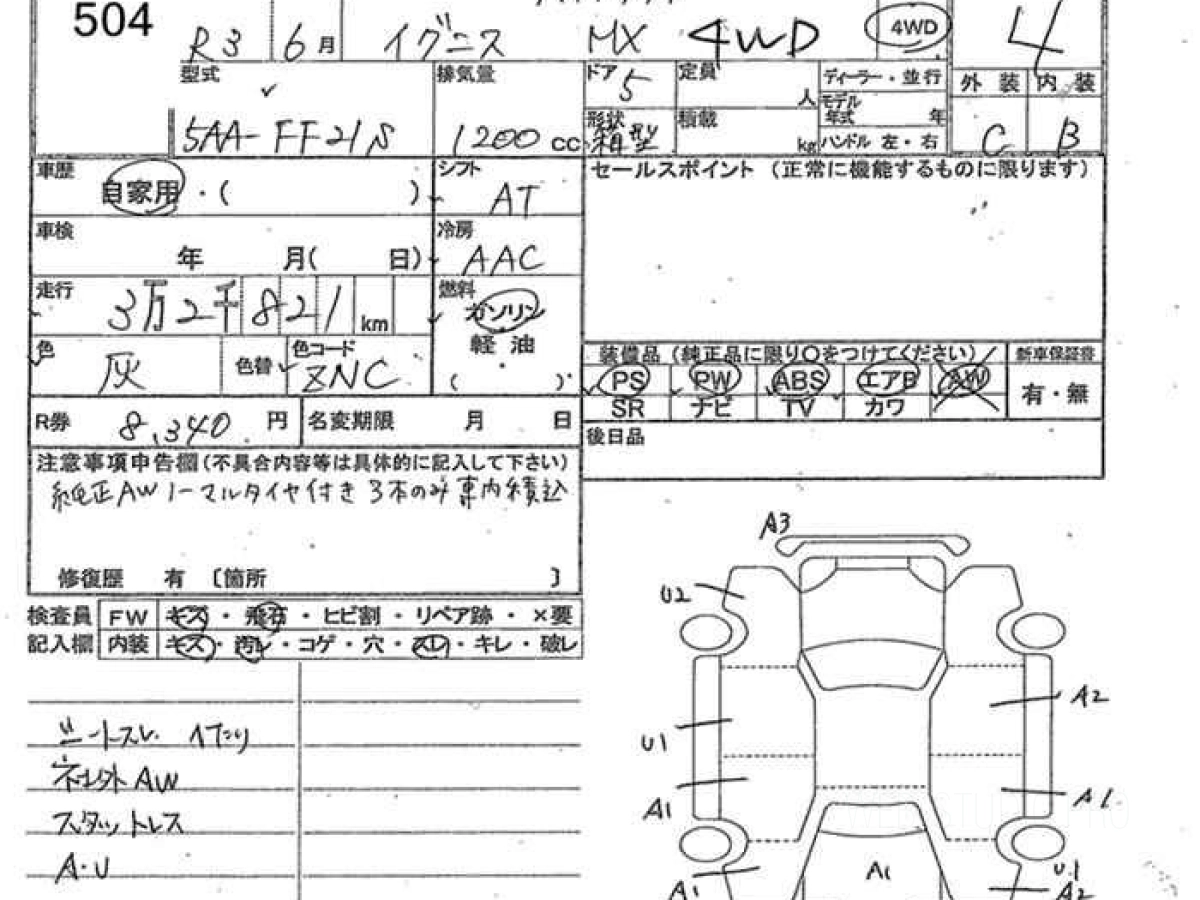 504
R3 6月 イグニス MX 4WD 4WD 4
型式 排気量 ドア 5 定員 人 ディーラー・並行 外装 内装
5AA-FF21S 1200 cc 形状 箱型 積載 kg モデル年式 年 C B
ハンドル 左・右
車歴 自家用・( ) シフト AT セールスポイント (正常に機能するものに限ります)
車検 年 月( 日) 冷房 AAC
走行 3万2千821 km 燃料 ガソリン
軽油
( )
色 灰 色替 色コード ZNC
装備品 (純正品に限り○をつけてください) 新車保証書
PS PW ABS エアB AW 有・無
SR ナビ TV カワ
R券 8,340 円 名変期限 月 日
後日品
注意事項申告欄(不具合内容等は具体的に記入して下さい)
純正AWノーマルタイヤ付き 3本のみ車内積込
修復歴 有 〔箇所 〕
検査員 FW キズ・飛石・ヒビ割・リペア跡・×要
記入欄 内装 キズ・汚レ・コゲ・穴・スレ・キレ・破レ
シートスレ イタミ
社外AW
スタットレス
A・U
A3
U2
A2
U1
A1
A1
A1
A1
U1
A2